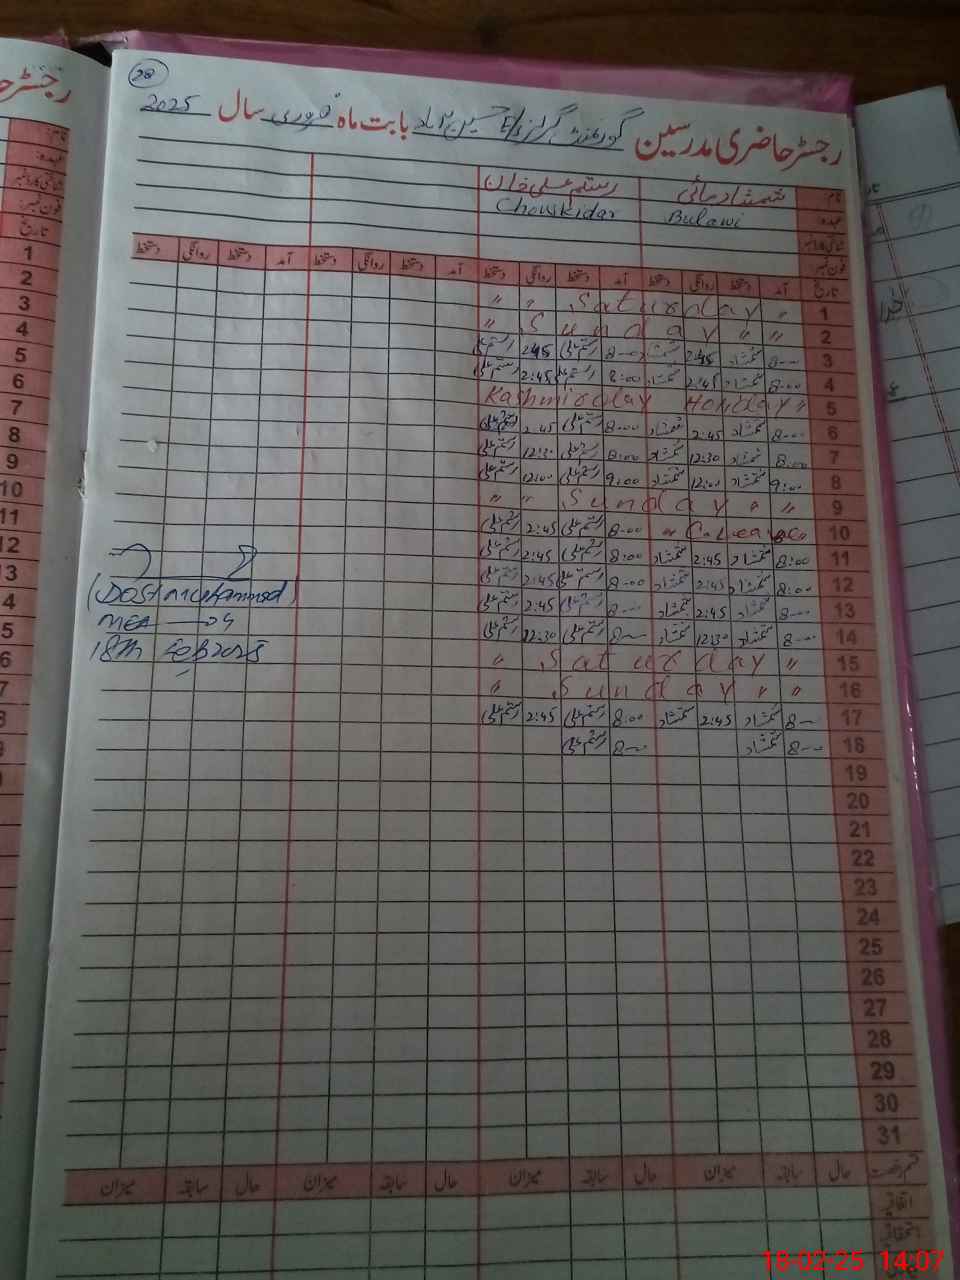 28
رجسٹر حاضری مدرسین گورنمنٹ گرلز حسین آباد بابت ماہ فروری سال 2025
نام شمشاد مائی رستم علی خان
عہدہ Bulawi Chowkidar
شناختی کارڈ نمبر
فون نمبر
تاریخ آمد دستخط روانگی دستخط آمد دستخط روانگی دستخط آمد دستخط روانگی دستخط آمد دستخط روانگی دستخط
1 " Saturday " "
2 " " Sunday "
3 8-00 شمشاد 2:45 شمشاد 8-00 رستم علی 2:45 رستم علی
4 8-00 شمشاد 2:45 شمشاد 8:00 رستم علی 2:45 رستم علی
5 Kashmir day Holiday "
6 8-00 شمشاد 2:45 شمشاد 8-00 رستم علی 2:45 رستم علی
7 8:00 شمشاد 12:30 شمشاد 8:00 رستم علی 12:30 رستم علی
8 9:00 شمشاد 12:00 شمشاد 9:00 رستم علی 12:00 رستم علی
9 " " Sunday " "
10 " C.Leave " 8-00 رستم علی 2:45 رستم علی
11 8:00 شمشاد 2:45 شمشاد 8:00 رستم علی 2:45 رستم علی
12 8:00 شمشاد 2:45 شمشاد 8-00 رستم علی 2:45 رستم علی
13 8-00 شمشاد 2:45 شمشاد 8-00 رستم علی 2:45 رستم علی
14 8-00 شمشاد 12:30 شمشاد 8-00 رستم علی 12:30 رستم علی
15 " Saturday "
16 " " Sunday "
17 8-00 شمشاد 2:45 شمشاد 8:00 رستم علی 2:45 رستم علی
18 8-00 شمشاد 8-00 رستم علی
(Dost muhammad)
MEA — 04
18th Feb 2025
19
20
21
22
23
24
25
26
27
28
29
30
31
قسم رخصت حال سابقہ میزان حال سابقہ میزان حال سابقہ میزان حال سابقہ میزان
اتفاقیہ
استحقاقیہ
رجسٹر
نام
عہدہ
شناختی کارڈ نمبر
فون نمبر
تاریخ
1
2
3
4
5
6
7
8
9
10
11
12
13
4
5
6
7
18-02-25 14:07